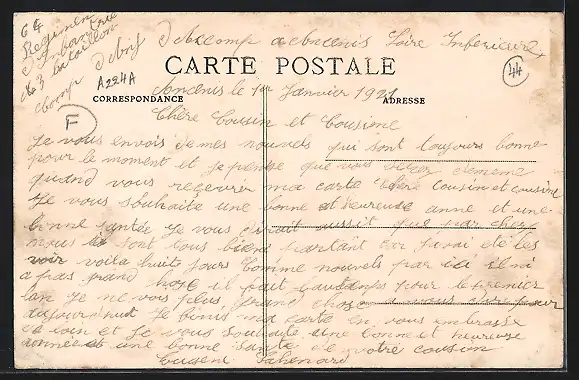 64
Regimen
d'Infanterie
3 bataillon
Comp
A224A
Loire Inferieure
CARTE POSTALE
44
CORRESPONDANCE
ADRESSE
Ancenis le 1er Janvier 1921
F
Chère Cousin et Cousine
Je vous envois de mes nouvels qui sont toujours bonne
pour le moment et je pense que vous serez de meme
quand vous recevrer ma carte Chère Cousin et cousine
Je vous souhaite une bonne et Heureuse anné et une
bonne santée Je vous aussit que par chez
nous sont tous bien partant car j'avai été les
voir voila huits jours Comme nouvels par ici il ni
a pas grand chose il fait pour le premier
lan Je ne vois plus grand chose a vous dire pour
aujourd'huit Je finis ma carte en vous embrasse
de loin et Je vous souhaite une bonne et heureuse
année et une bonne santé de votre cousin